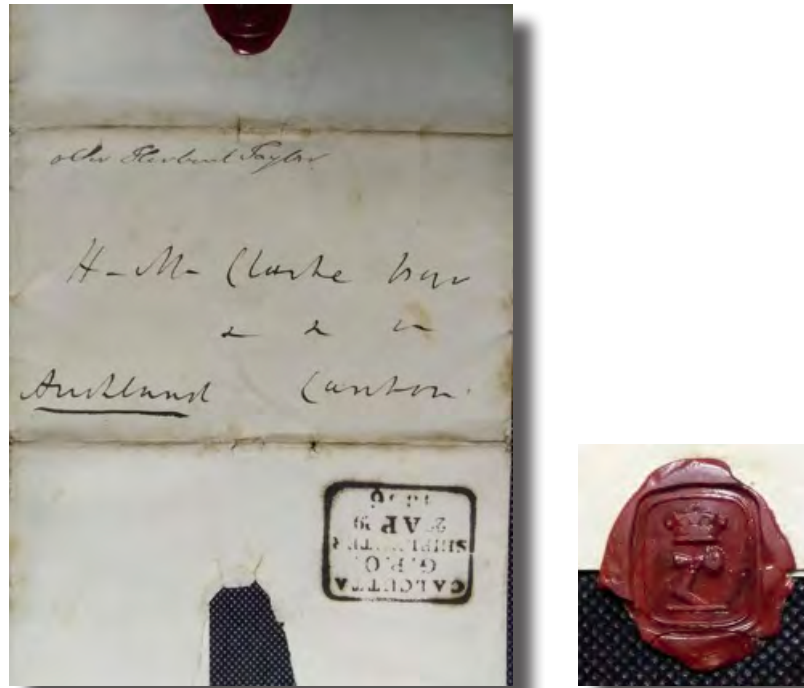 Herbert Taylor
H-M- Clarke Esqr
& & &
Auckland Canton.
CALCUTTA
G.P.O.
SHIP LETTER
AP
1836